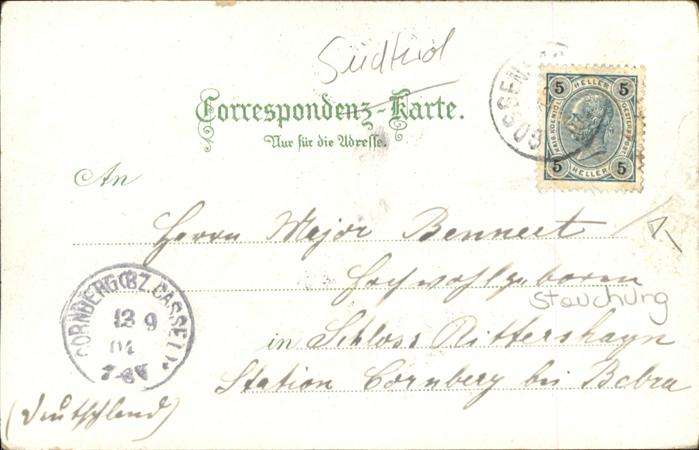 Südtirol
GOSSEN
5 HELLER 5
KAIS. KOENIGL.
OESTERR. POST
5 HELLER 5
Correspondenz-Karte.
Nur für die Adresse.
An
Herrn Major Bennert
Hochwohlgeboren
Stauchung
in Schloss Rittershayn
Station Cornberg bei Bebra
(Deutschland)
CORNBERG (BZ. CASSEL)
13 9
04
7-8V